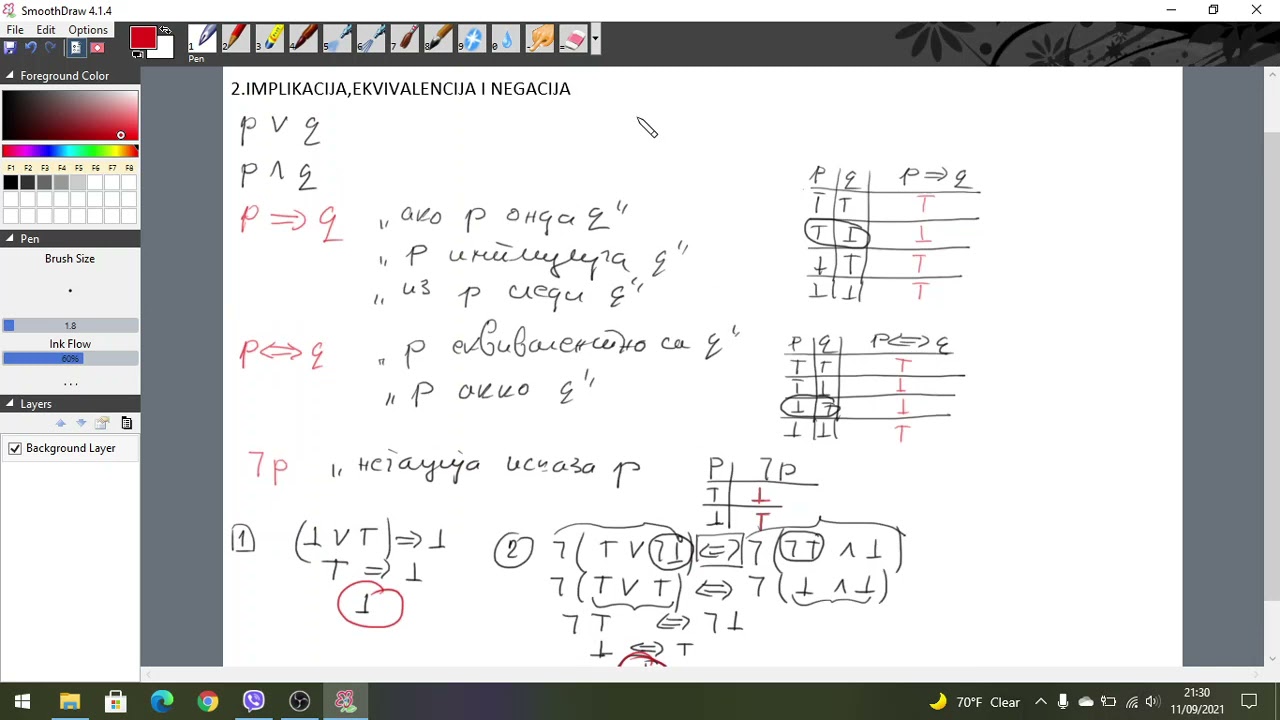 SmoothDraw 4.1.4
File Edit Options
Foreground Color
F1 F2 F3 F4 F5 F6 F7 F8
Pen
Brush Size
1.8
Ink Flow
60%
...
Layers
Background Layer
1 2 3 4 5 6 7 8 9 0
Pen
2.IMPLIKACIJA,EKVIVALENCIJA I NEGACIJA
p ∨ q
p ∧ q
p ⇒ q „ако p онда q“
„p имплицира q“
„из p следи q“
p q p ⇒ q
T T T
T ⊥ ⊥
⊥ T T
⊥ ⊥ T
p ⇔ q „p еквивалентно са q“
„p акко q“
p q p ⇔ q
T T T
T ⊥ ⊥
⊥ T ⊥
⊥ ⊥ T
⅂p „негација исказа p
p ⅂p
T ⊥
⊥ T
1 (⊥ ∨ T) ⇒ ⊥
T ⇒ ⊥
⊥
2 ⅂(T ∨ ⅂⊥) ⇔ ⅂(⅂T ∧ ⊥)
⅂(T ∨ T) ⇔ ⅂(⊥ ∧ ⊥)
⅂T ⇔ ⅂⊥
⊥ ⇔ T
70°F Clear
21:30
11/09/2021